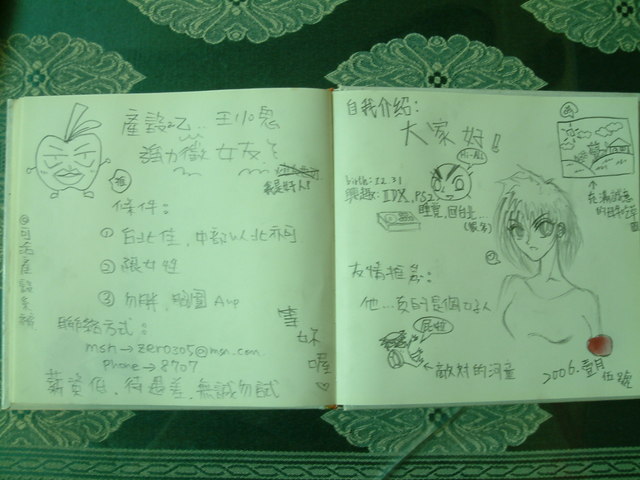 產設2乙... 王小鬼
強力徵女友
我是好人!
推
條件:
① 台北佳,中部以北可.
② 限女性
③ 勿胖,胸圍 A up
聯絡方式:
msn→zero305@msn.com
Phone→8707
薪資低,待遇差,無誠勿試
意
妳
喔
♡
自我介紹:
大家好!
Hi~ALL
birth:12.31
興趣:IDX,PS2
睡覺,
友情推薦:
他...真的是個好人
屁啦
←敵對的河童
2006.壹月
伍號
充滿誠意
的自我